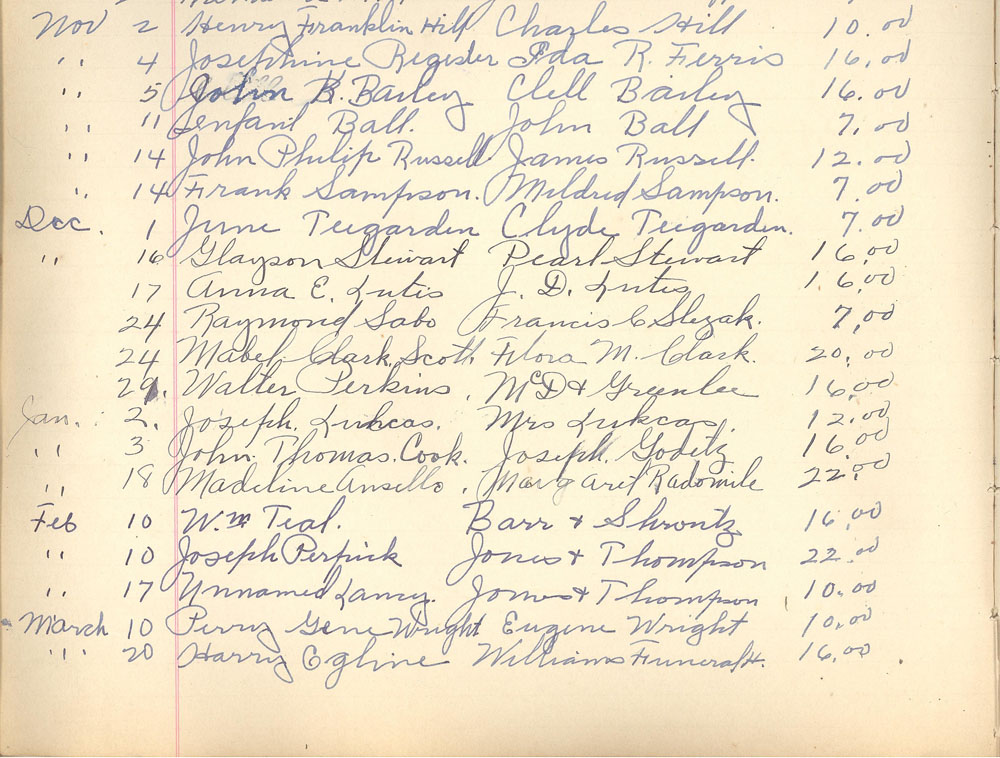 Nov 2 Henry Franklin Hill Charles Hill 10.00
" 4 Josephine Register Ida R. Ferris 16.00
" 5 John B. Bailey Clell Bailey 16.00
" 11 Infant Ball. John Ball 7.00
" 14 John Philip Russell James Russell. 12.00
" 14 Frank Sampson. Mildred Sampson. 7.00
Dec. 1 June Teegarden Clyde Teegarden. 7.00
" 16 Glayson Stewart Pearl Stewart 16.00
17 Anna E. Lutes J. D. Lutes 16.00
24 Raymond Sabo Francis C Slezak. 7.00
24 Mabel Clark Scott Flora M. Clark. 20.00
29. Walter Perkins, McD & Greenlee 16.00
Jan. 2. Joseph. Lukcas. Mrs Lukcas, 12.00
" 3 John. Thomas. Cook. Joseph. Goditz 16.00
" 18 Madeline Ansello, Margaret Radomile 22.00
Feb 10 Wm Teal. Barr & Shrontz 16.00
" 10 Joseph Perpick Jones & Thompson 22.00
" 17 Unnamed Lancy. Jones & Thompson 10.00
March 10 Perry Gene Wright Eugene Wright 10.00
" 20 Harry Egline Williams Funeral H. 16.00